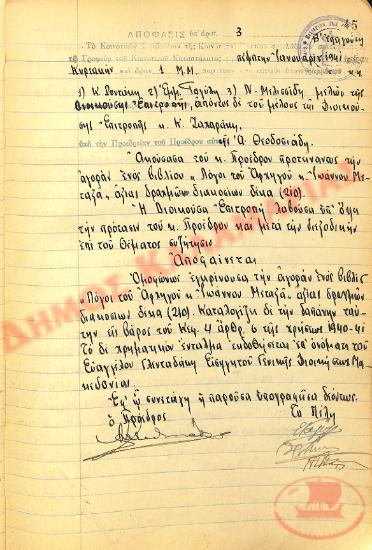 45
ΑΠΟΦΑΣΙΣ ὑπ' ἀριθ. 3
Τὸ Κοινοτικὸν Συμβούλιον τῆς Κοινότητος
τὸ Γραφεῖον τοῦ Κοινοτικοῦ Καταστήματος πέμπτην Ἰανουαρίου 1941
Κυριακὴν 1 Μ.Μ.
1) Κ. 2) 3) Ν. Μιλτσίδη, μελῶν τῆς
Διοικούσης Ἐπιτροπῆς, ἀπόντος δὲ τοῦ μέλους τῆς Διοικού-
σης Ἐπιτροπῆς κ. Κ. Ζαχαράκη,
ὑπὸ τὴν Προεδρείαν τοῦ Προέδρου αὐτῆς Α. Θεοδοσιάδη.
Ἀκούσασα τοῦ κ. Προέδρου προτείναντος τὴν
ἀγορὰν ἑνὸς βιβλίου "Λόγοι τοῦ Ἀρχηγοῦ κ. Ἰωάννου Με-
ταξᾶ", ἀξίας δραχμῶν διακοσίων δέκα (210).
Ἡ Διοικοῦσα Ἐπιτροπὴ λαβοῦσα ὑπ' ὄψει
τὴν πρότασιν τοῦ κ. Προέδρου καὶ μετὰ τὴν διεξοδικὴν
ἐπὶ τοῦ θέματος συζήτησιν
Ἀποφαίνεται
Ὁμοφώνως ἐγκρίνουσα τὴν ἀγορὰν ἑνὸς βιβλίου
"Λόγοι τοῦ Ἀρχηγοῦ κ. Ἰωάννου Μεταξᾶ" ἀξίας δραχμῶν
διακοσίων δέκα (210). Καταλογίζει δὲ τὴν δαπάνην ταύ-
την εἰς βάρος τοῦ Κεφ. 4 ἄρθρ. 6 τῆς χρήσεως 1940-41
Τὸ δὲ χρηματικὸν ἔνταλμα ἐκδοθήσεται ἐπ' ὀνόματι τοῦ
Εὐαγγέλου Εἰσηγητοῦ Γενικῆς Διοικήσεως Μα-
κεδονίας.
Ἐφ' ᾧ συνετάγη ἡ παροῦσα ὑπογράφεται
ὁ Πρόεδρος Τὰ Μέλη
ΔΗΜΟΣ ΚΑΛΑΜΑΡΙΑΣ